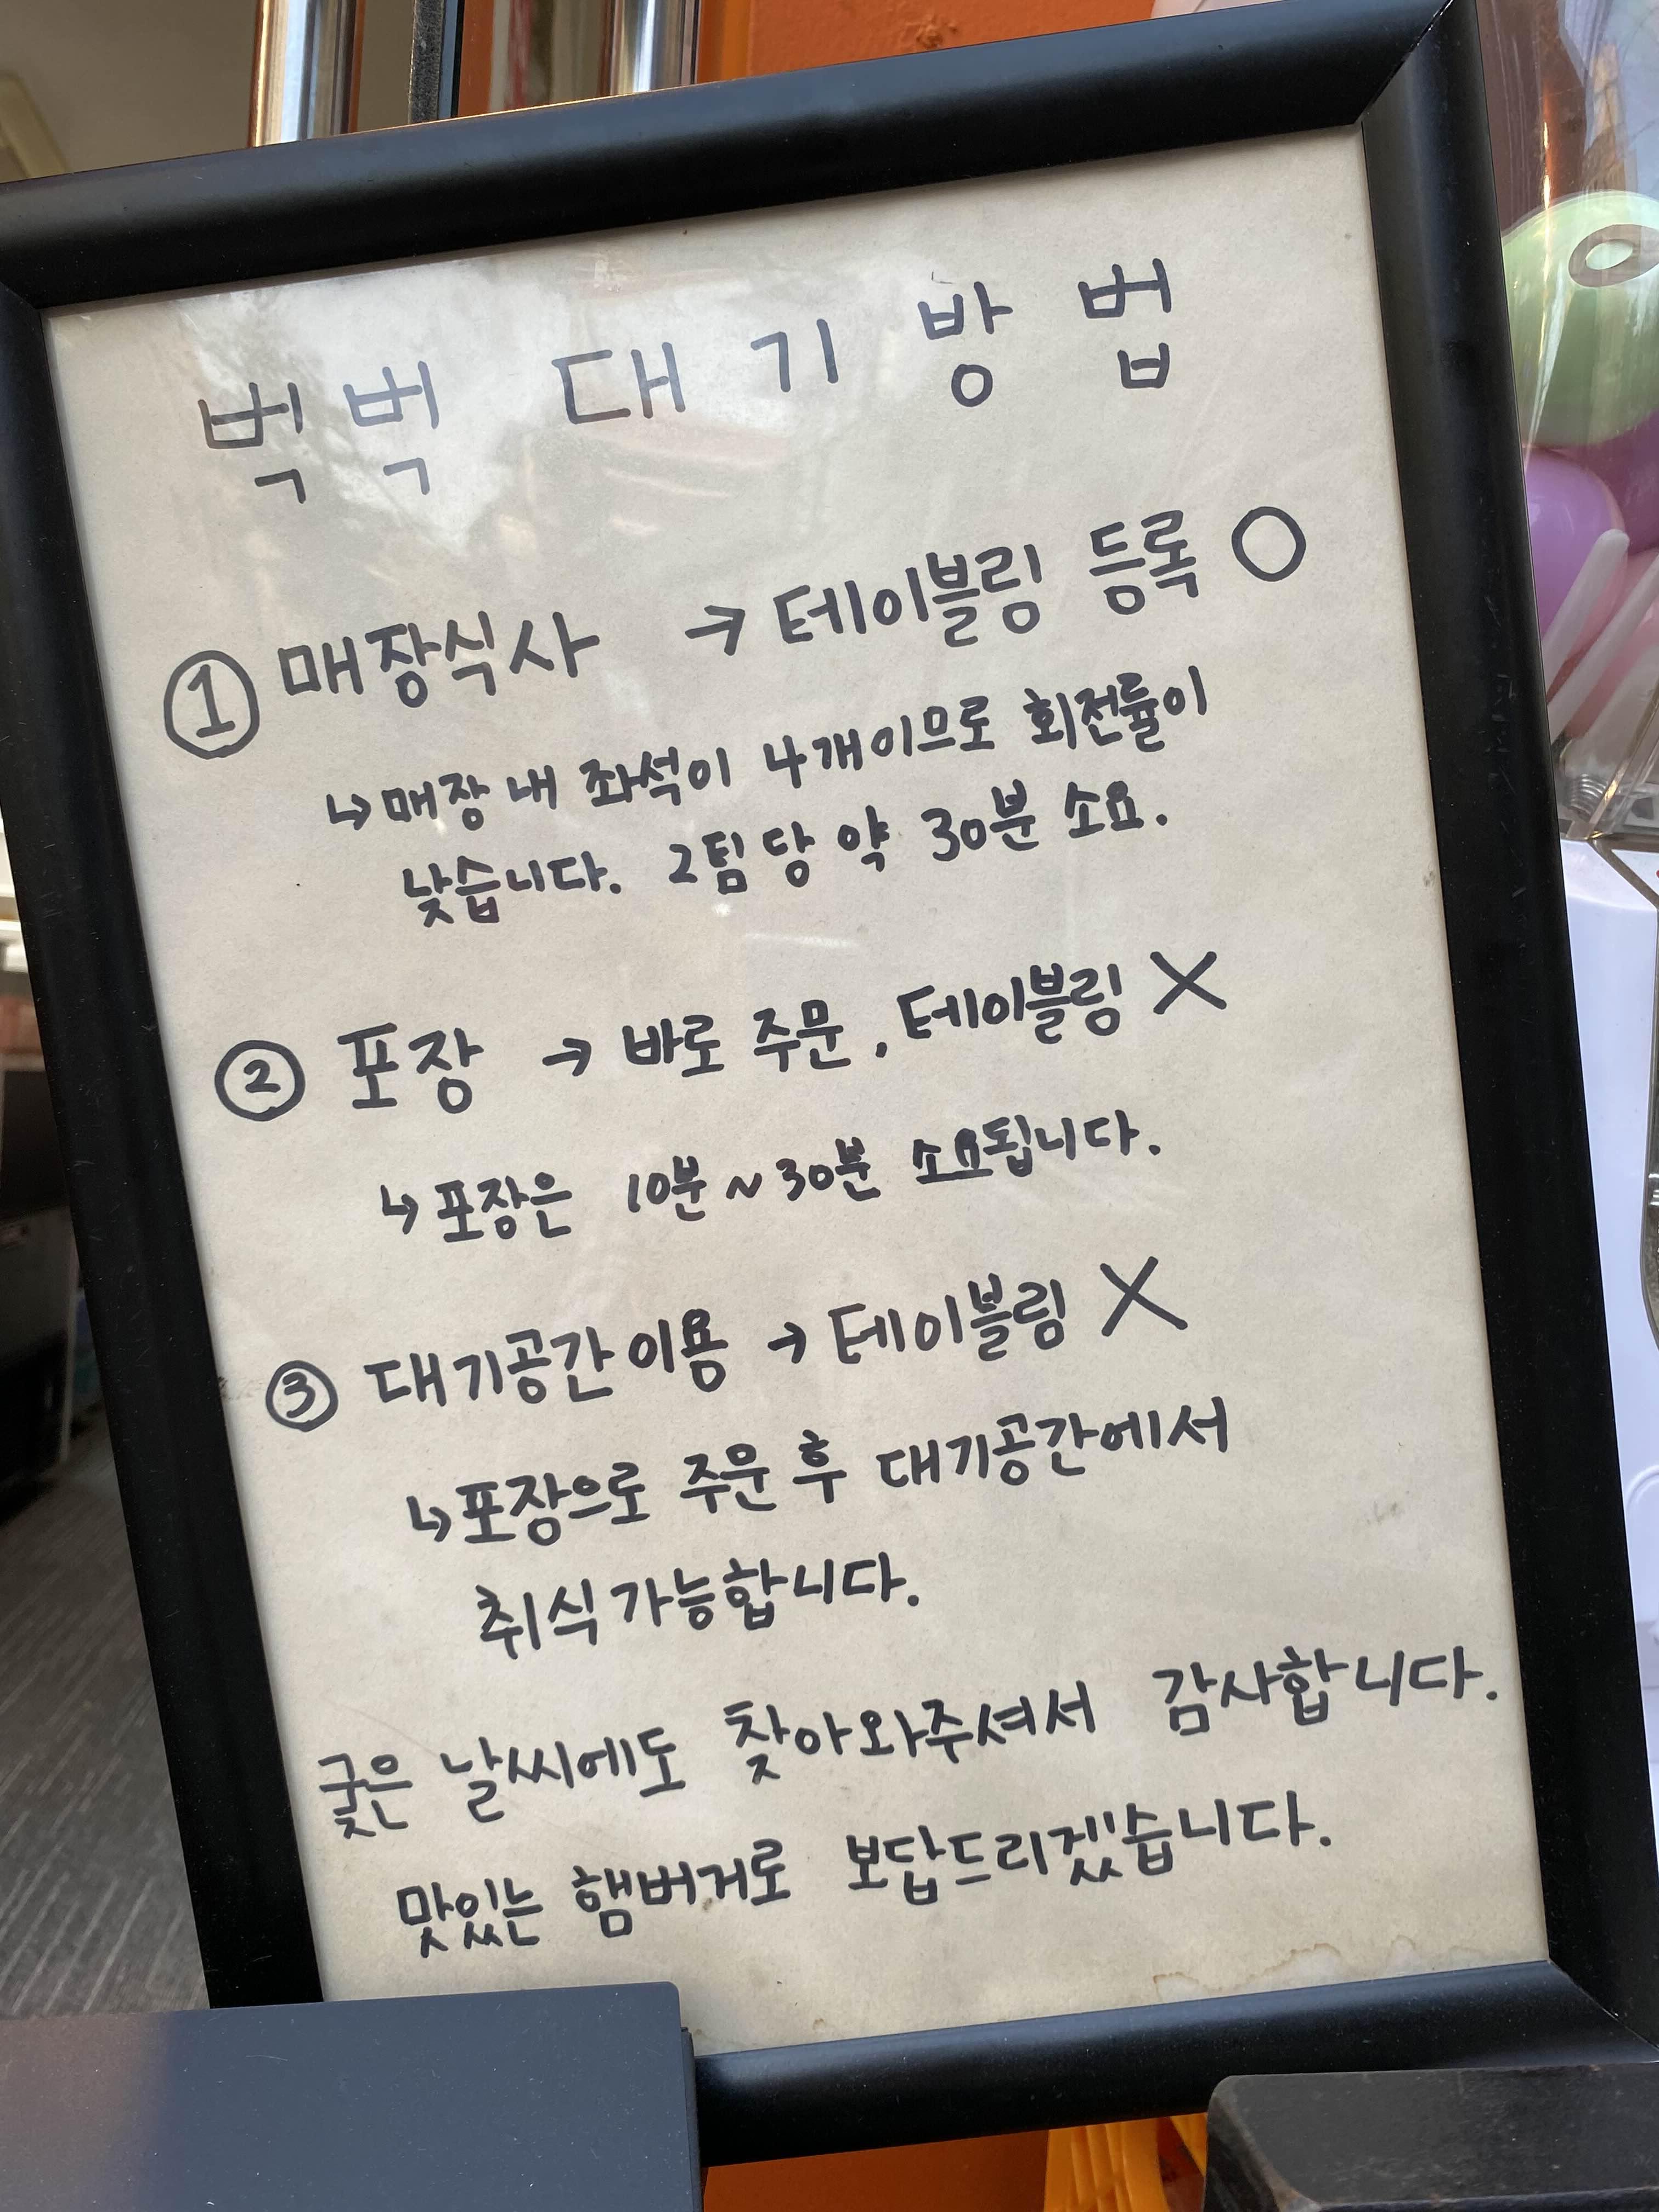 벅벅 대기 방법
① 매장식사 → 테이블링 등록 O
↳ 매장 내 좌석이 4개이므로 회전률이
낮습니다. 2팀 당 약 30분 소요.
② 포장 → 바로 주문, 테이블링 X
↳ 포장은 10분~30분 소요됩니다.
③ 대기공간이용 → 테이블링 X
↳ 포장으로 주문 후 대기공간에서
취식가능합니다.
궂은 날씨에도 찾아와주셔서 감사합니다.
맛있는 햄버거로 보답드리겠습니다.